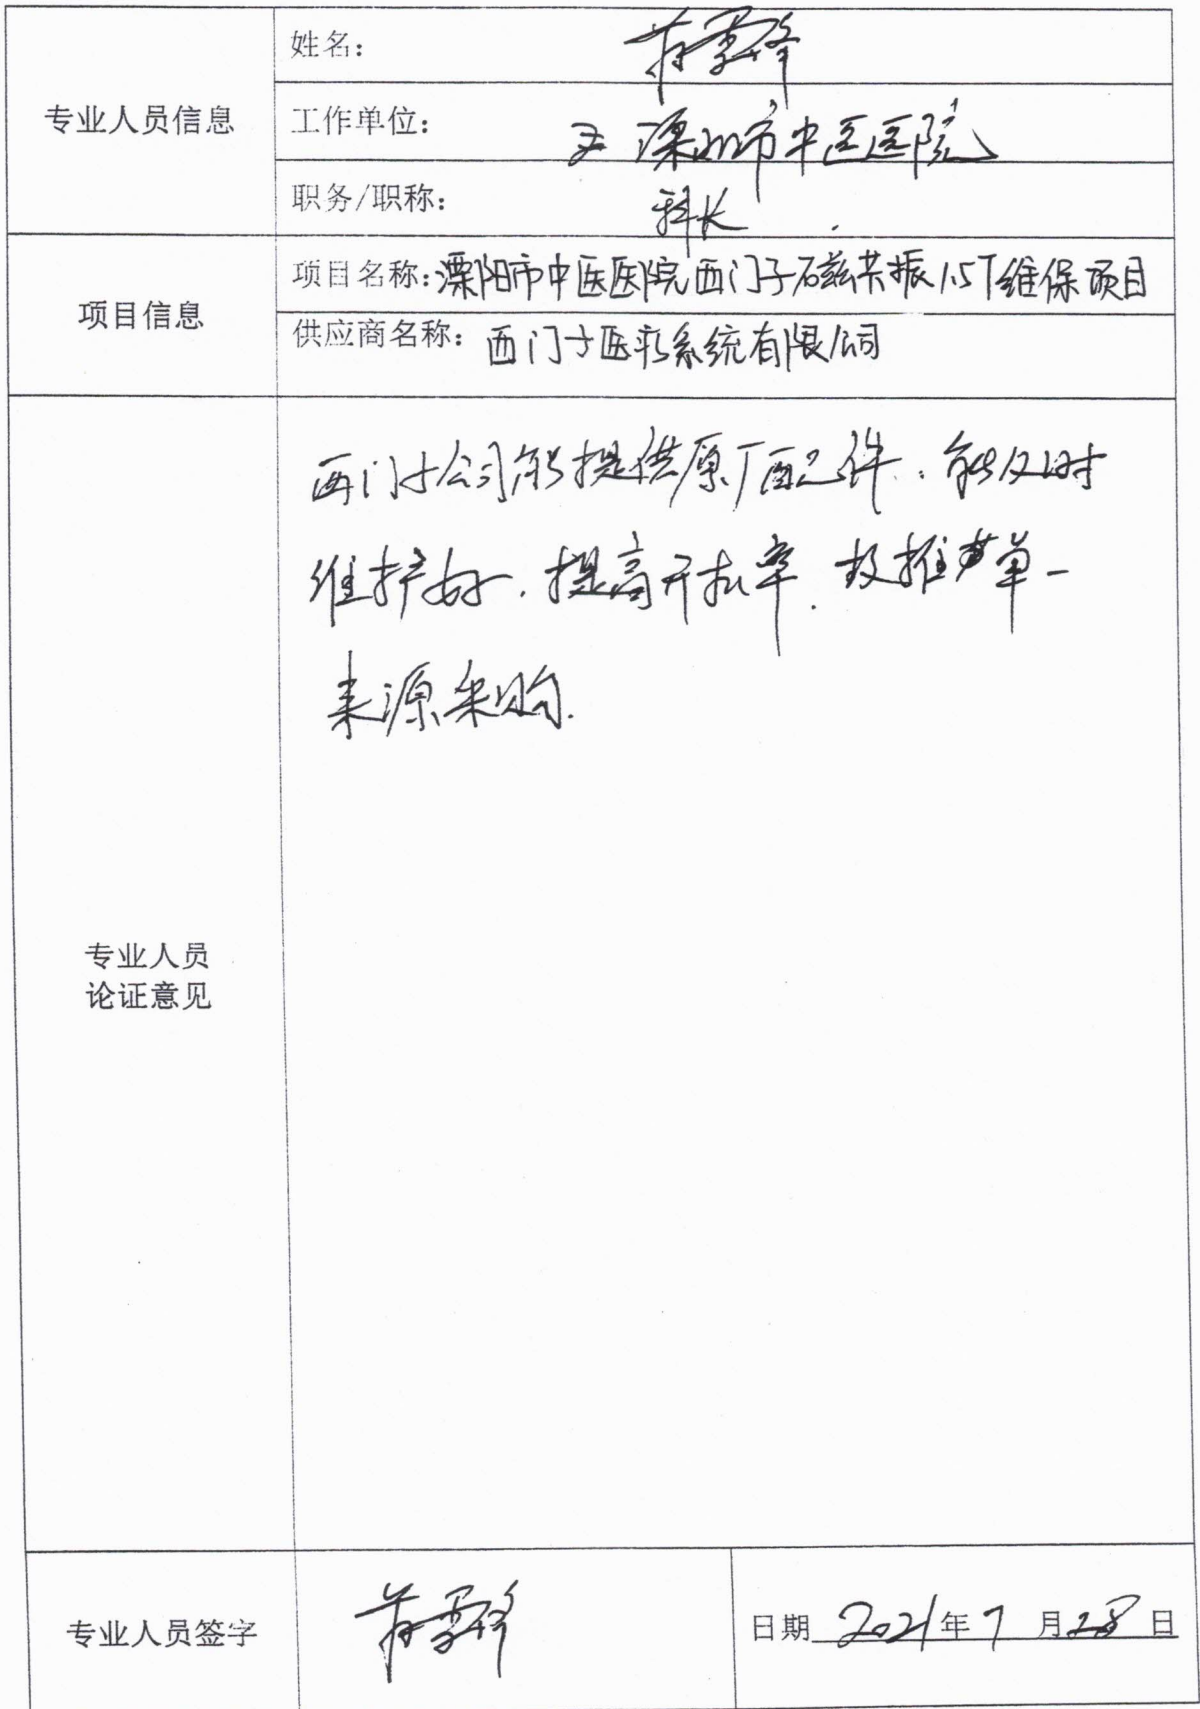 专业人员信息
姓名：
工作单位： 溧阳市中医医院
职务/职称： 科长
项目信息
项目名称：溧阳市中医医院西门子磁共振1.5T维保项目
供应商名称：西门子医疗系统有限公司
专业人员
论证意见
西门子公司能提供原厂配件，能及时
维护好，提高开机率，故推荐单一
来源采购.
专业人员签字
日期 2021年7月28日